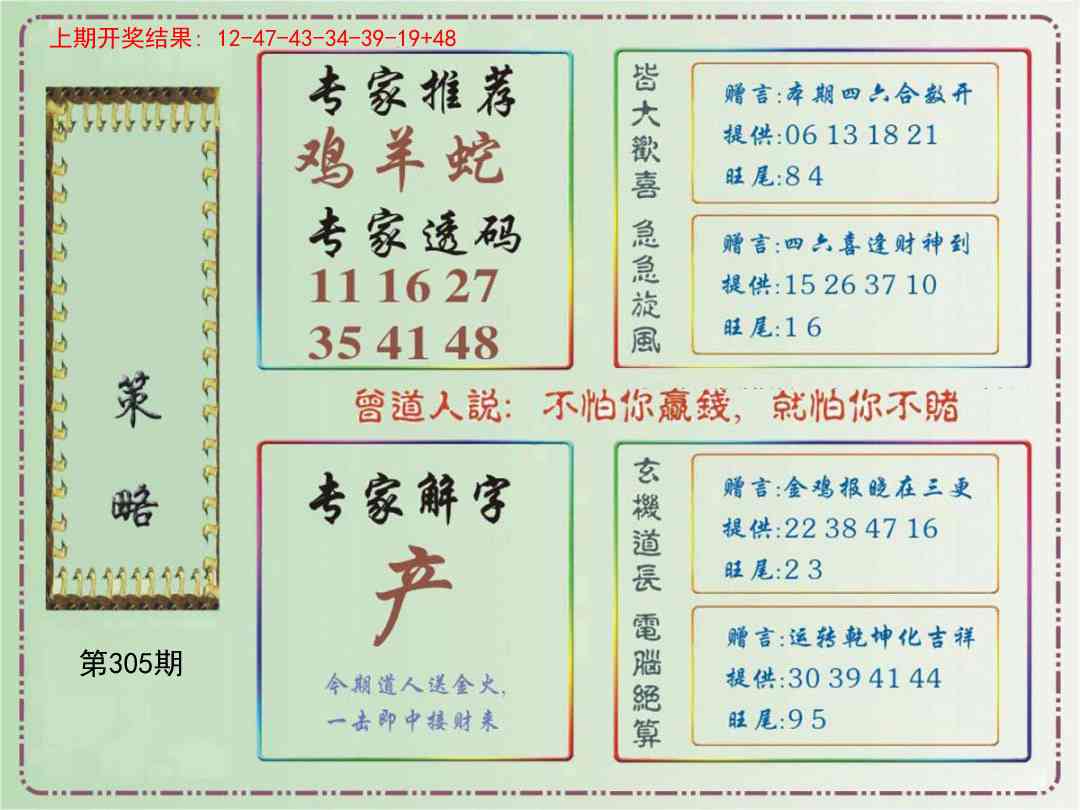 上期开奖结果: 12-47-43-34-39-19+48
策略
第305期
专家推荐
鸡羊蛇
专家透码
11 16 27
35 41 48
皆大歡喜
赠言:本期四六合数开
提供:06 13 18 21
旺尾:8 4
急急旋風
赠言:四六喜逢财神到
提供:15 26 37 10
旺尾:1 6
曾道人説: 不怕你贏錢, 就怕你不賭
专家解字
产
今期道人送金火,
一击即中接财来
玄機道長
赠言:金鸡报晓在三更
提供:22 38 47 16
旺尾:2 3
電腦絕算
赠言:运转乾坤化吉祥
提供:30 39 41 44
旺尾:9 5